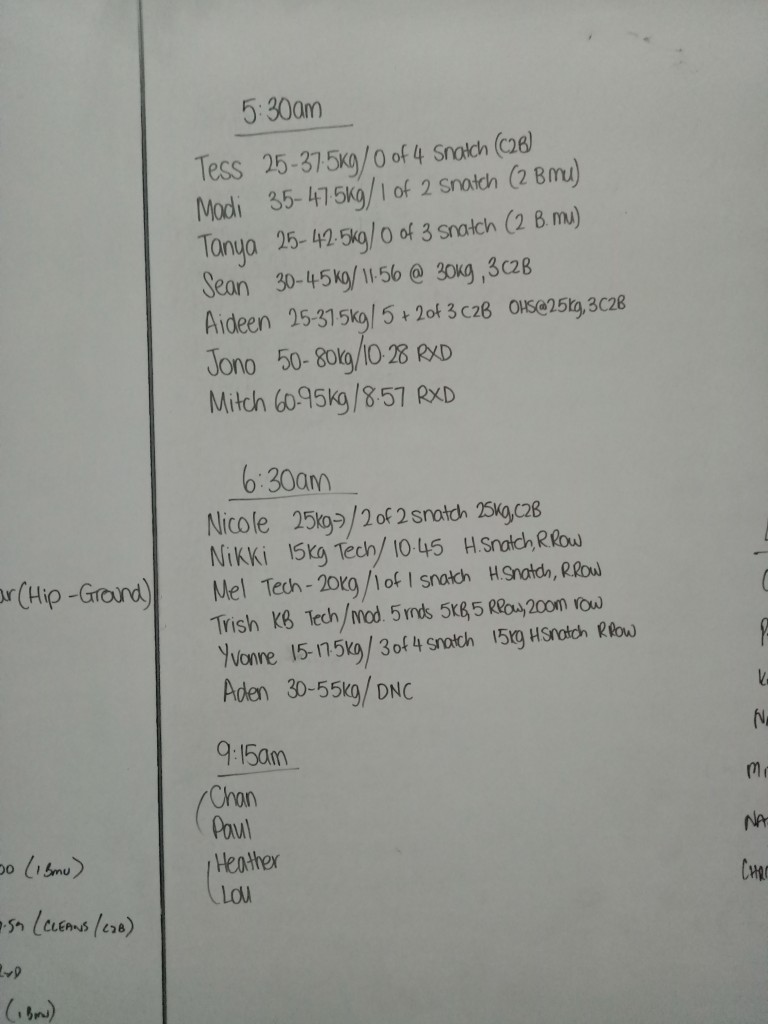 5:30am
Tess 25-37.5kg/0 of 4 Snatch (C2B)
Madi 35-47.5kg/1 of 2 snatch (2 Bmu)
Tanya 25-42.5kg/0 of 3 snatch (2 B.mu)
Sean 30-45kg/11.56 @ 30kg, 3C2B
Aideen 25-37.5kg/5 + 2 of 3 C2B OHS@25kg, 3C2B
Jono 50-80kg/10.28 RXD
Mitch 60-95kg/8.57 RXD
6:30am
Nicole 25kg→/2 of 2 snatch 25kg, C2B
Nikki 15kg Tech/10.45 H.Snatch, R.Row
Mel Tech-20kg/1 of 1 snatch H.Snatch, R.Row
Trish KB Tech/mod. 5 rnds 5KB, 5 RRow, 200m row
Yvonne 15-17.5kg/3 of 4 snatch 15kg HSnatch RRow
Aden 30-55kg/DNC
9:15am
Chan
Paul
Heather
Lou
(Hip-Ground)
(1 Bmu)
(CLEANS/C2B)
(1 Bmu)